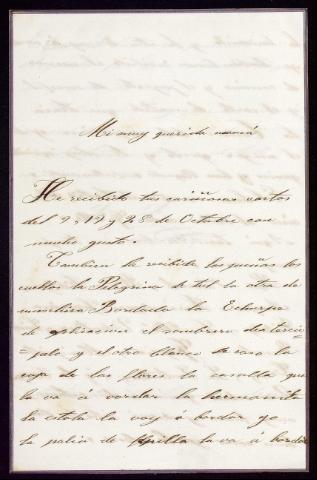 Mi muy querida mamá
He recibido tus cariñosas cartas
del 9, 19 y 28 de Octubre con
mucho gusto.
Tambien he recibido los puños los
cuellos la Pelegrina de tul la otra de
muselina Bordada la Echarpe
de aplicacion el sombrero de terciο=
=pelo y el otro blanco de raso la
caja de las flores la casulla que
le va á vordar la hermanita
la estola la voy á bordar yo
la palia de la va á bordar